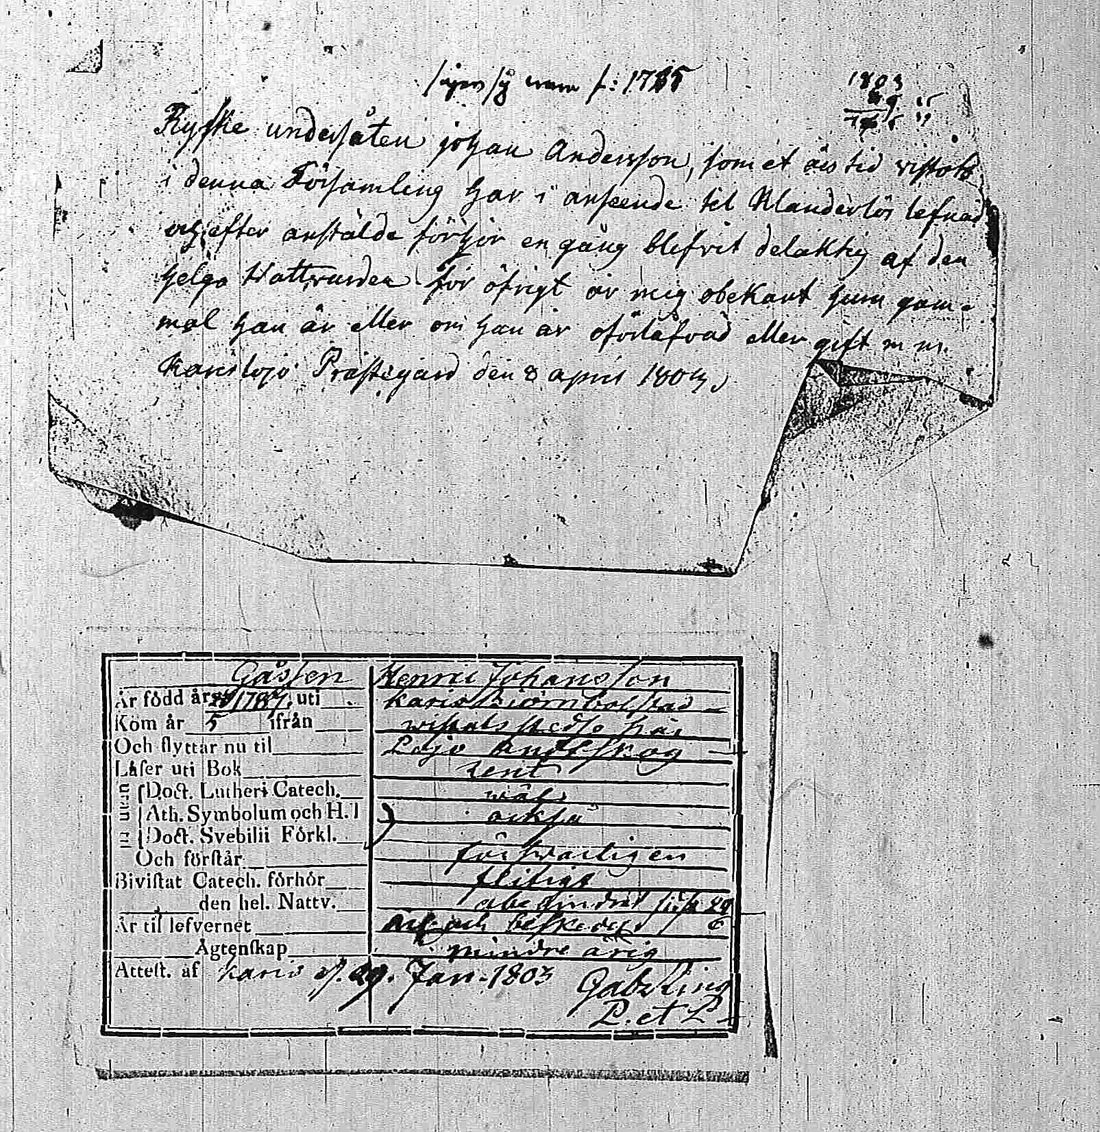 säjes sig vara f: 1785
1803
Ryske undersåten johan Andersson, som et års tid vistats
i denna Församling har i anseende til Klanderlös lefnad
och efter anstälde förhör en gång blefvit delaktig af den
helga Nattvarden för öfrigt är mig obekant huru gam-
mal han är eller om han är oförlåfvad eller gift m m.
Karislojo Prästegård den 8 april 1803,
Gåssen Henric Johansson
Är född år 1787. uti Karis Biörnbolsstad
Kom år 5 ifrån wistats stedse här
Och flyttar nu til Lojo
Läser uti Bok rent
Doct. Lutheri Catech. wäl
Ath. Symbolum och H. T
Doct. Svebilii Förkl. också
Och förstår försvarligen
Bivistat Catech. förhör flitigt
den hel. Nattv. obehindrad sist 29
Är til lefvernet och beskedlig
Ägtenskap minderårig
Attest. af Karis d. 29. Jan. 1803 Gab. Ring
P. et P.